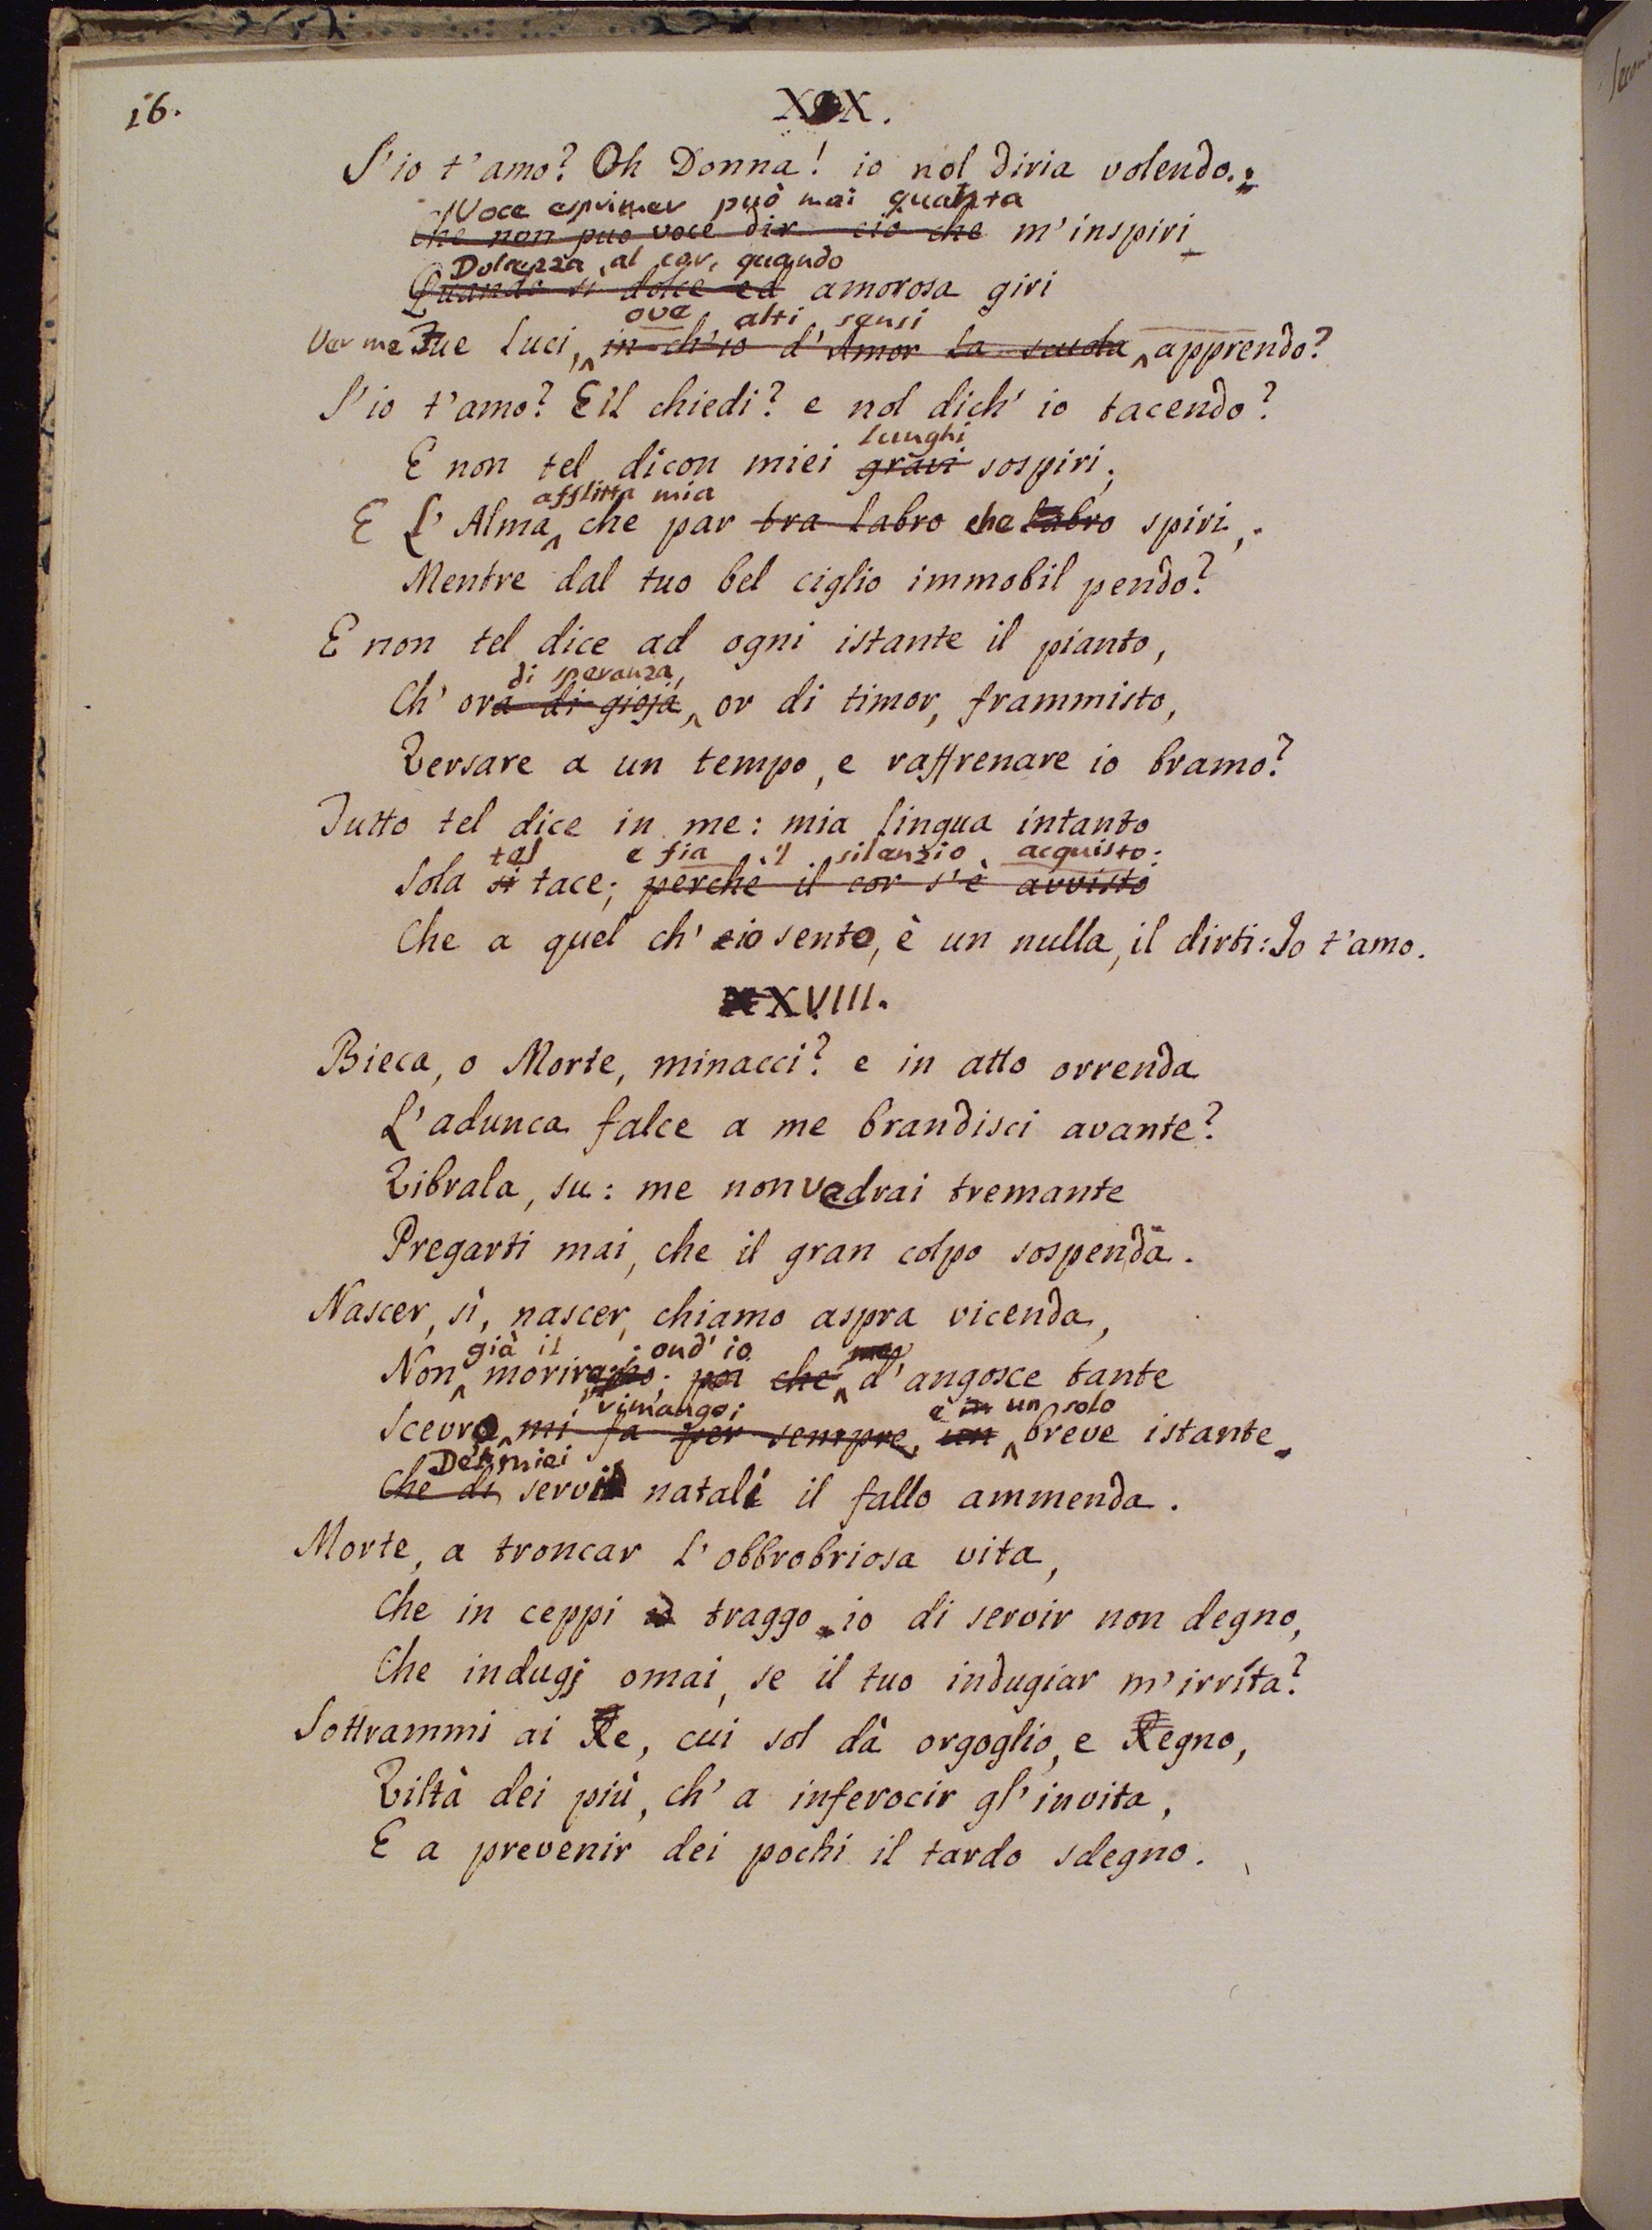 16.
XIX.
S'io t'amo? Oh Donna! io nol diria volendo.
Voce esprimer può mai quanta
Che non può voce dir ciò che m'inspiri
Dolcezza al cor, quando
Quando si dolce ed amorosa giri
ove alti sensi
Ver me Tue luci, in ch'io d'Amor la scuola apprendo?
S'io t'amo? E il chiedi? e nol dich' io tacendo?
lunghi
E non tel dicon miei gravi sospiri;
afflitta mia
E L'Alma che par tra labro che labro spiri,
Mentre dal tuo bel ciglio immobil pendo?
E non tel dice ad ogni istante il pianto,
di speranza,
Ch' ora di gioja, or di timor, frammisto,
Versare a un tempo, e raffrenare io bramo?
Tutto tel dice in me: mia lingua intanto
tel e fia il silenzio acquisto:
Sola si tace; perchè il cor s'è avvisto
Che a quel ch' io sento, è un nulla, il dirti: Io t'amo.
XVIII.
Bieca, o Morte, minacci? e in atto orrenda
L'adunca falce a me brandisci avante?
Vibrala, su: me non vedrai tremante
Pregarti mai, che il gran colpo sospenda.
Nascer, sì, nascer, chiamo aspra vicenda,
già il ; ond' io
Non morir; poi che d'angosce tante
rimango; è in un solo
Scevro mi fa per sempre, un breve istante
De' miei
Che di servil natali il fallo ammenda.
Morte, a troncar l'obbrobriosa vita,
Che in ceppi traggo io di servir non degno,
Che indugj omai, se il tuo indugiar m'irríta?
Sottrammi ai Re, cui sol dà orgoglio, e Regno,
Viltà dei più, ch' a inferocir gl'invita,
E a prevenir dei pochi il tardo sdegno.